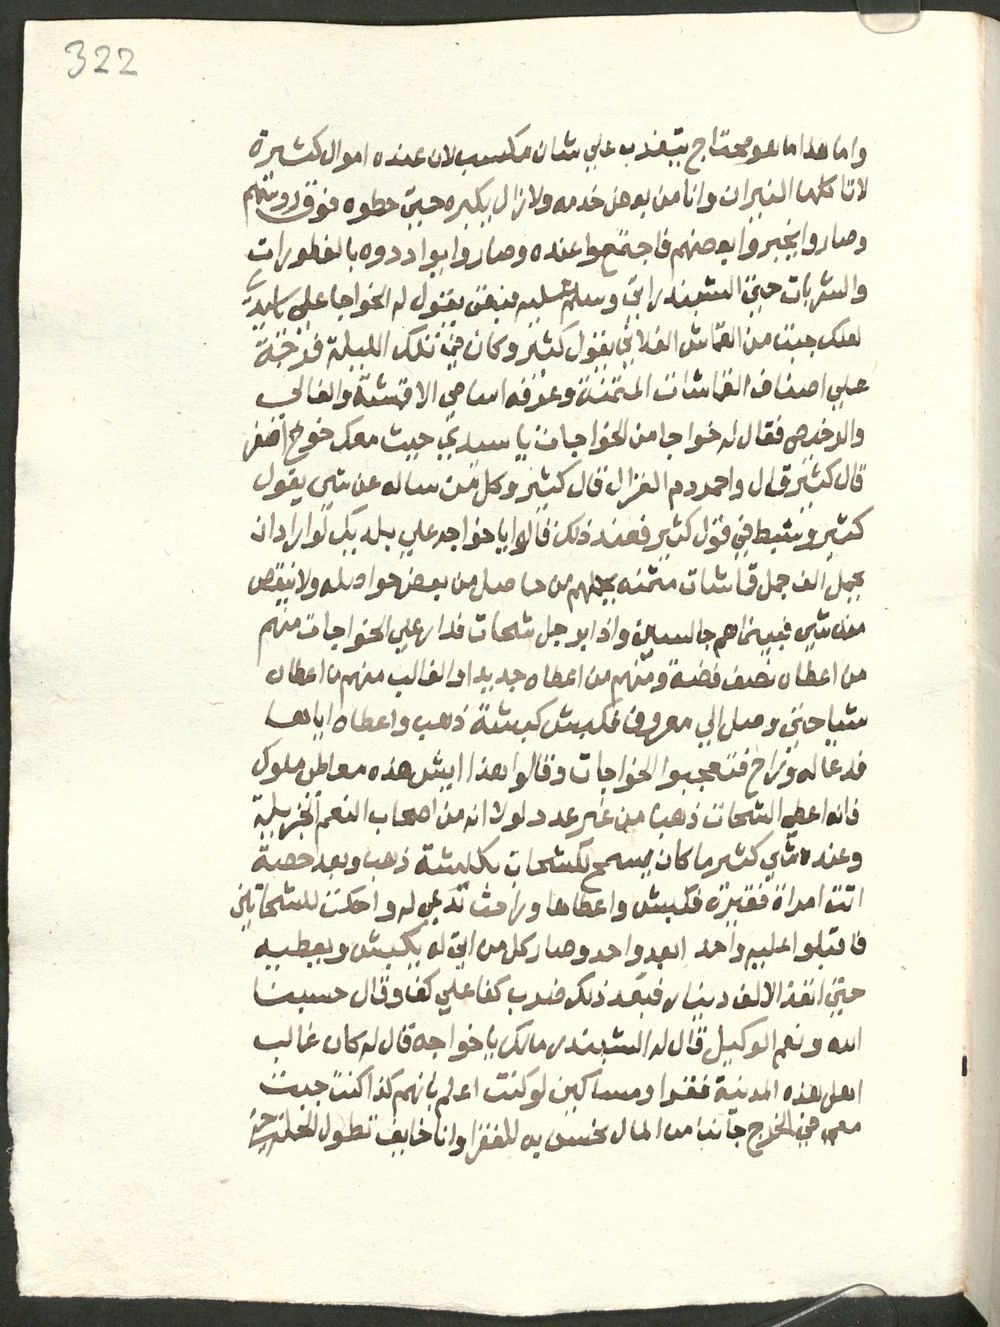 322
واما هدا ما هو محتاج يتغرب علي شان مكسب لان عنده اموال كثيرة
لا تاكلها النيران وانا من بعض خدمه ولا زال يكبره حتي حطوه فوق روسهم
وصاروا يخبروا بعضهم فاجتمعوا عنده وصاروا يواددوه بالفطورات
والشربات حتي الشبندر اتي وسلم عليه فبقي يقول له الخواجا علي يا سيدي
لعلك جبت من القماش الفلاني يقول كثير وكان في تلك الليلة فرجة
علي اصناف القماشات المتمنة وعرفه اسامي الاقمشة والغالي
والرخيص فقال له خواجا من الخواجات يا سيدي جيت معك خوخ اصفر
قال كثير قال واحمر دم الغزال قال كثير وكل من ساله عن شي يقول
كثير وشيط في قول كثير فعند ذلك قالوا يا خواجه علي بلديك لو اراد ان
يحمل الف حمل قماشات متمنه يحملهم من حاصل من بعض حواصله ولا ينقص
منه شي فبينما هم جالسين واذا برجل شحات فدار علي الخواجات منهم
من اعطاه نصف فضة ومنهم من اعطاه جديد او الغالب منهم ما اعطاه
شيا حتي وصل الي معروف فكبش كبشة ذهب واعطاه اياها
فدعا له وراح فتعجبوا الخواجات وقالوا هذا ايش هذه معاطي ملوك
فانه اعطي الشحات ذهبا من غير عدد لولا انه من اصحاب النعم الجزيلة
وعنده شي كثير ما كان يسمح لشحات بكبشة ذهب وبعد حصة
اتت امراة فقيرة فكبش واعطاها وراحت تدعي له واحكت للشحاتين
فاقبلوا عليه واحد ابعد واحد وصار كل من اتي له يكبش ويعطيه
حتي انفذ الالف دينار فبعد ذلك ضرب كفا علي كف وقال حسبنا
الله ونعم الوكيل قال له الشبندر مالك يا خواجه قال له كان غالب
اهل هذه المدينة فقرا ومساكين لو كنت اعلم بانهم كذا كنت جبت
معي في الخرج جانب من المال نحسن به للفقرا وانا خايف تطول